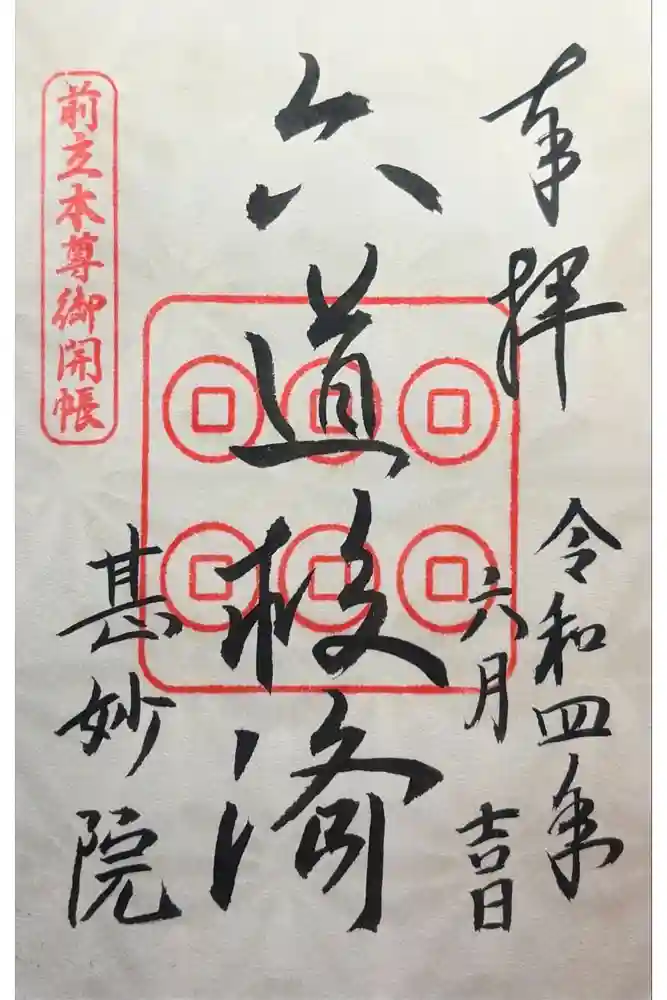 奉拝
令和四年
六月吉日
六道救済
甚妙院
前立本尊御開帳